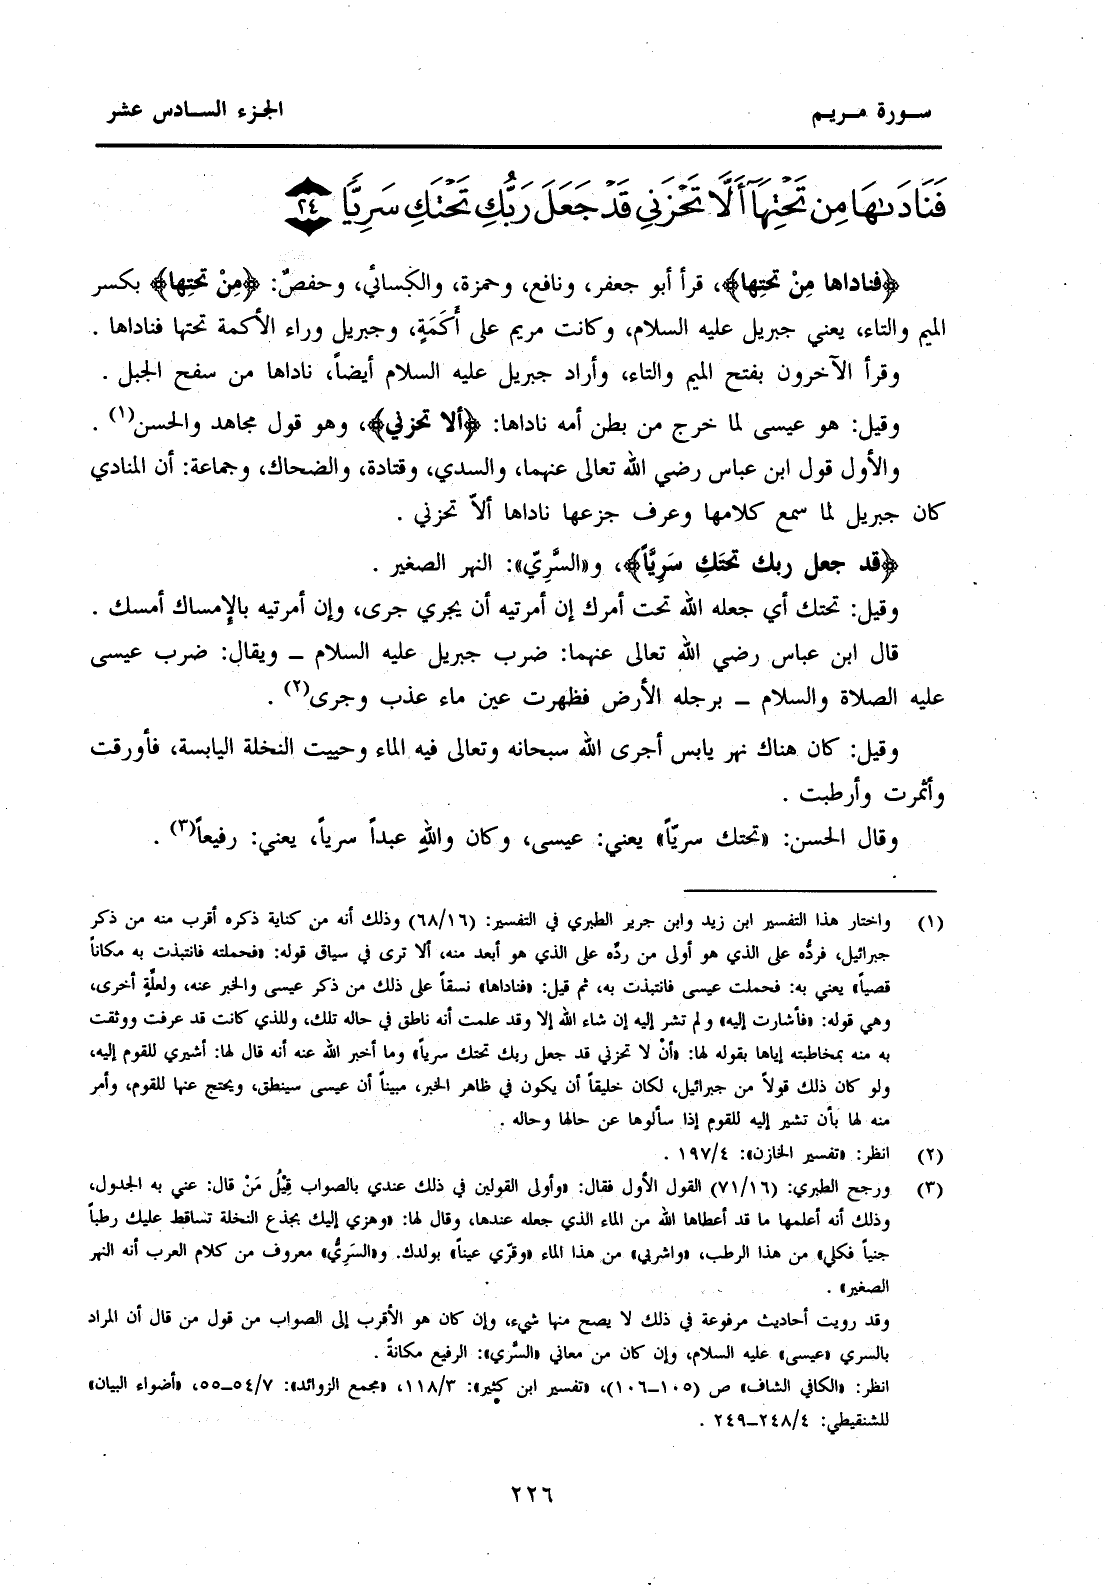 سورة مريم
الجزء السادس عشر
فَنَادَىٰهَا مِن تَحْتِهَآ أَلَّا تَحْزَنِي قَدْ جَعَلَ رَبُّكِ تَحْتَكِ سَرِيًّا ٢٤
﴿فناداها مِنْ تحتِها﴾، قرأ أبو جعفر، ونافع، وحمزة، والكسائي، وحفصٌ: ﴿مِنْ تحتِها﴾ بكسر
الميم والتاء، يعني جبريل عليه السلام، وكانت مريم على أَكَمَةٍ، وجبريل وراء الأكمة تحتها فناداها .
وقرأ الآخرون بفتح الميم والتاء، وأراد جبريل عليه السلام أيضاً، ناداها من سفح الجبل .
وقيل: هو عيسى لما خرج من بطن أمه ناداها: ﴿ألا تحزني﴾، وهو قول مجاهد والحسن(١) .
والأول قول ابن عباس رضي الله تعالى عنهما، والسدي، وقتادة، والضحاك، وجماعة: أن المنادي
كان جبريل لما سمع كلامها وعرف جزعها ناداها ألاّ تحزني .
﴿قد جعل ربك تحتَكِ سَرِيَّاً﴾، و«السَّرِيّ»: النهر الصغير .
وقيل: تحتك أي جعله الله تحت أمرك إن أمرتيه أن يجري جرى، وإن أمرتيه بالإمساك أمسك .
قال ابن عباس رضي الله تعالى عنهما: ضرب جبريل عليه السلام ــ ويقال: ضرب عيسى
عليه الصلاة والسلام ــ برجله الأرض فظهرت عين ماء عذب وجرى(٢) .
وقيل: كان هناك نهر يابس أجرى الله سبحانه وتعالى فيه الماء وحييت النخلة اليابسة، فأورقت
وأثمرت وأرطبت .
وقال الحسن: «تحتك سريّاً» يعني: عيسى، وكان واللهِ عبداً سرياً، يعني: رفيعاً(٣) .
(١) واختار هذا التفسير ابن زيد وابن جرير الطبري في التفسير: (٦٨/١٦) وذلك أنه من كناية ذكره أقرب منه من ذكر
جبرائيل، فردُّه على الذي هو أولى من ردِّه على الذي هو أبعد منه، ألا ترى في سياق قوله: «فحملته فانتبذت به مكاناً
قصياً» يعني به: فحملت عيسى فانتبذت به، ثم قيل: «فناداها» نسقاً على ذلك من ذكر عيسى والخبر عنه، ولعلّةٍ أخرى،
وهي قوله: «فأشارت إليه» ولم تشر إليه إن شاء الله إلا وقد علمت أنه ناطق في حاله تلك، وللذي كانت قد عرفت ووثقت
به منه بمخاطبته إياها بقوله لها: «أنْ لا تحزني قد جعل ربك تحتك سرياً» وما أخبر الله عنه أنه قال لها: أشيري للقوم إليه،
ولو كان ذلك قولاً من جبرائيل، لكان خليقاً أن يكون في ظاهر الخبر، مبيناً أن عيسى سينطق، ويحتج عنها للقوم، وأمر
منه لها بأن تشير إليه للقوم إذا سألوها عن حالها وحاله .
(٢) انظر: «تفسير الخازن»: ١٩٧/٤ .
(٣) ورجح الطبري: (٧١/١٦) القول الأول فقال: «وأولى القولين في ذلك عندي بالصواب قِيْلُ مَنْ قال: عني به الجدول،
وذلك أنه أعلمها ما قد أعطاها الله من الماء الذي جعله عندها، وقال لها: «وهزي إليك بجذع النخلة تساقط عليك رطباً
جنياً فكلي» من هذا الرطب، «واشربي» من هذا الماء «وقرّي عيناً» بولدك. و«السَرِيُّ» معروف من كلام العرب أنه النهر
الصغير» .
وقد رويت أحاديث مرفوعة في ذلك لا يصح منها شيء، وإن كان هو الأقرب إلى الصواب من قول من قال أن المراد
بالسري «عيسى» عليه السلام، وإن كان من معاني «السَّري»: الرفيع مكانةً .
انظر: «الكافي الشاف» ص (١٠٥-١٠٦)، «تفسير ابن كثير»: ١١٨/٣، «مجمع الزوائد»: ٥٤/٧-٥٥، «أضواء البيان»
للشنقيطي: ٢٤٨/٤-٢٤٩ .
٢٢٦